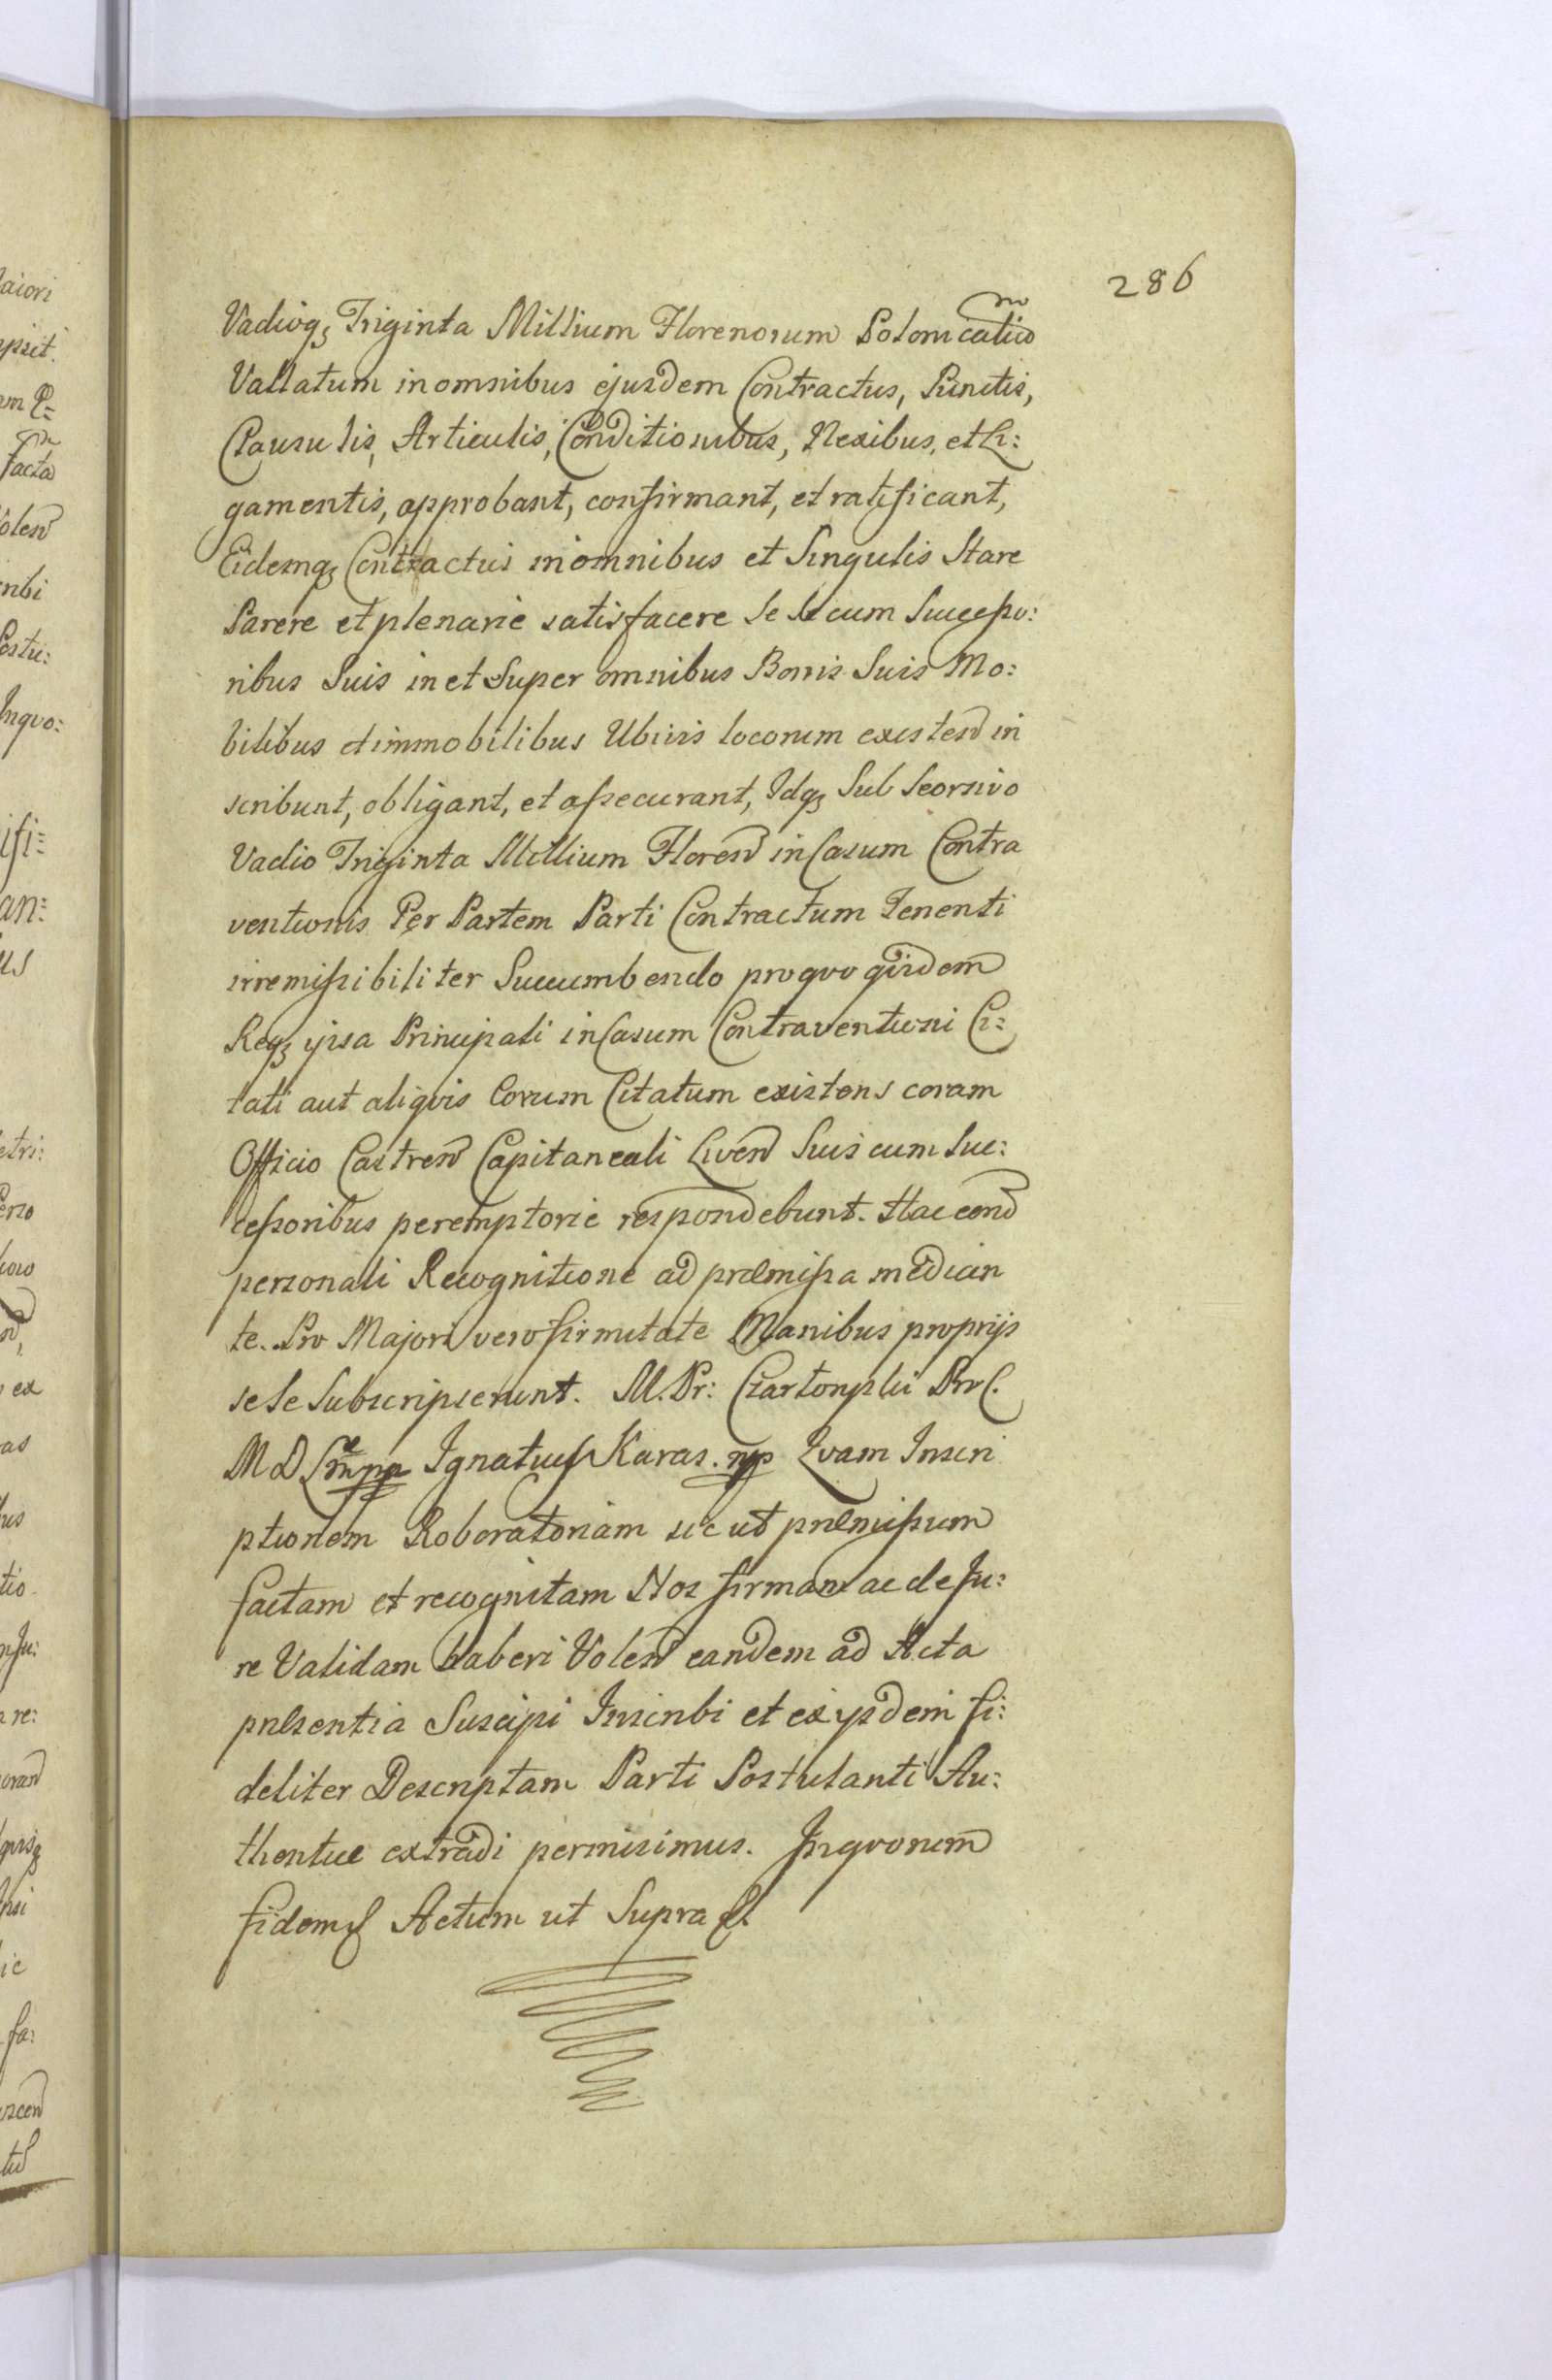 286
Vadioq₃ Triginta Millium Florenorum Polonicalium
Vallatum in omnibus ejusdem Contractus, Punctis,
Clausulis, Articulis, Conditionibus, Nexibus, et Li:
gamentis, approbant, confirmant, et ratificant,
Eidemq₃ Contractui in omnibus et Singulis Stare
Parere et plenarie satisfacere se se cum Successo:
ribus Suis in et Super omnibus Bonis Suis Mo:
bilibus et immobilibus Ubivis locorum existen in
scribunt, obligant, et assecurant, Idq₃ Sub Seorsivo
Vadio Triginta Millium Floren in Casum Contra
ventionis Per Partem Parti Contractum Tenenti
irremissibiliter Succumbendo pro qvo qvidem
Req₃ ipsa Principali in Casum Contraventioni Ci:
tati aut aliqvis Eorum Citatum existens coram
Officio Castren Capitaneali Liven Suis cum Suc:
cessoribus peremptorie respondebunt. Hac eorud
personali Recognitione ad præmissa median
te. Pro Majori vero firmitate Manibus proprijs
sese Subscripserunt. M. Pr: Czartoryski
M D Ignatius Karas. mp Qvam Inscri
ptionem Roboratoriam sic ut præmissum
factam et recognitam Nos firmam ac de Ju:
re Validam haberi Volen eandem ad Acta
præsentia Suscipi Inscribi et ex ijsdem fi:
deliter Descriptam Parti Postulanti Au:
thentice extradi permisimus. In qvorum
fidem Actum ut Supra